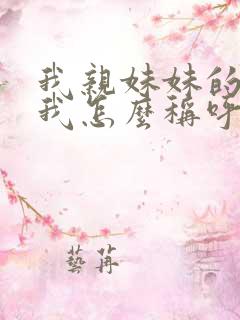 我親妹妹的
我怎麼稱呼
藝苒